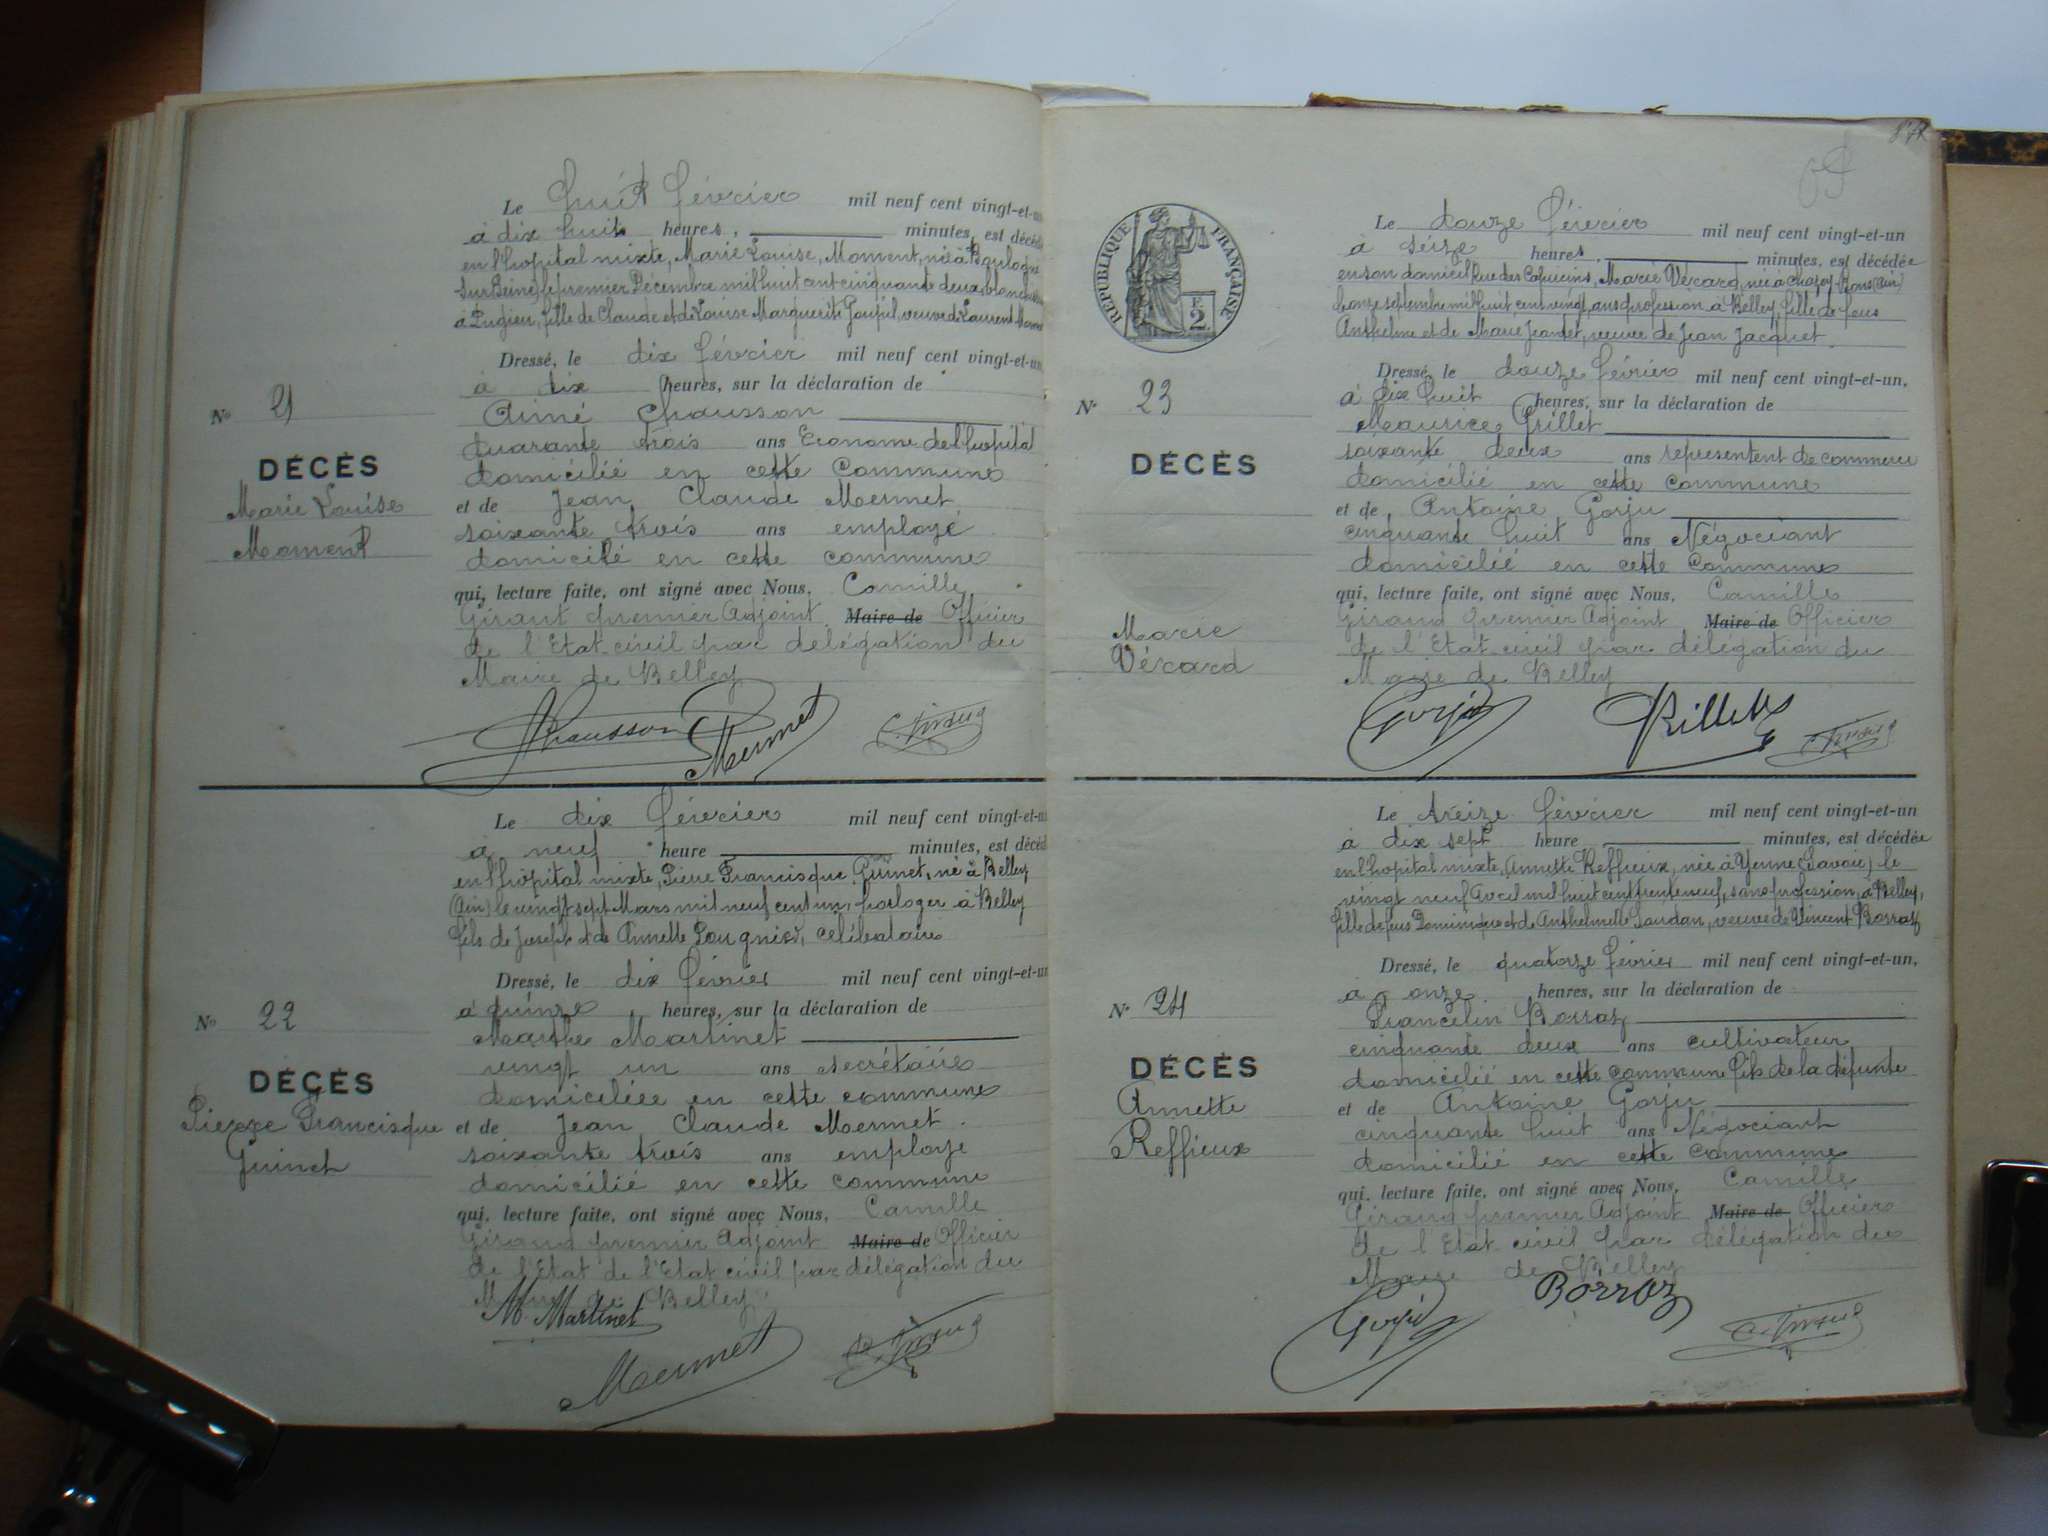 Le huit février mil neuf cent vingt-et-un
à dix huit heures, minutes, est décédée
en l'hopital mixte, Marie Louise, Moment, née à Boulogne
sur Seine, le premier Décembre mil huit cent cinquante deux,
à Pugieu, fille de Claude et de Louise Marguerite veuve de Laurent
Dressé, le dix février mil neuf cent vingt-et-un,
à dix heures, sur la déclaration de
Aimé Chausson
quarante trois ans Econome de l'hopital
domicilié en cette commune
et de Jean Claude Mermet
soixante trois ans employé
domicilé en cette commune
qui, lecture faite, ont signé avec Nous, Camille
Giraut premier Adjoint Maire de Officier
de l'Etat-civil par délégation du
Maire de Belley
Chausson Mermet C. Giraud
N° 21
DÉCÈS
Marie Louise
Moment
Le dix février mil neuf cent vingt-et-un
à neuf heure minutes, est décédé
en l'hôpital mixte, Pierre Francisque Guinet, né à Belley
(Ain) le vingt sept Mars mil neuf cent un, horloger à Belley
fils de Joseph et de Annette célibataire
Dressé, le dix février mil neuf cent vingt-et-un
à quinze heures, sur la déclaration de
Marthe Martinet
vingt un ans secrétaire
domiciliée en cette commune
et de Jean Claude Mermet
soixante trois ans employé
domicilié en cette commune
qui, lecture faite, ont signé avec Nous, Camille
Giraud premier Adjoint Maire de Officier
de l'Etat de l'Etat civil par délégation du
Maire de Belley
M. Martinet
Mermet C. Giraud
N° 22
DÉCÈS
Pierre Francisque
Guinet
RÉPUBLIQUE FRANÇAISE
2 F.
Le douze février mil neuf cent vingt-et-un
à seize heures, minutes, est décédée
en son domicil Rue des Capucins, Marie Vérard, née à Chazey-Bons (Ain)
septembre mil huit cent vingt, profession à Belley, fille de feus
Anthelme et de Marie Jeantet, veuve de Jean Jacquet.
Dressé, le douze février mil neuf cent vingt-et-un,
à dix huit heures, sur la déclaration de
Maurice Grillet
soixante deux ans representent de commerce
domicilié en cette commune
et de Antoine Gorju
cinquante huit ans Négociant
domicilié en cette commune
qui, lecture faite, ont signé avec Nous, Camille
Giraud premier Adjoint Maire de Officier
de l'Etat-civil par délégation du
Maire de Belley
Gorju Grillet C. Giraud
N° 23
DÉCÈS
Marie
Vérard
Le treize février mil neuf cent vingt-et-un
à dix sept heure minutes, est décédée
en l'hopital mixte, Annette Reffieux, née à Yenne (Savoie) le
vingt neuf Avril mil huit cent trente neuf, sans profession, à Belley,
fille de feus Dominique et de Anthelmette veuve de Vincent Borraz
Dressé, le quatorze février mil neuf cent vingt-et-un,
à onze heures, sur la déclaration de
Francelin Borraz
cinquante deux ans cultivateur
domicilié en cette commune fils de la défunte
et de Antoine Gorju
cinquante huit ans Négociant
domicilié en cette commune
qui, lecture faite, ont signé avec Nous, Camille
Giraud premier Adjoint Maire de Officier
de l'Etat-civil par délégation du
Maire de Belley
Gorju Borraz C. Giraud
N° 24
DÉCÈS
Annette
Reffieux